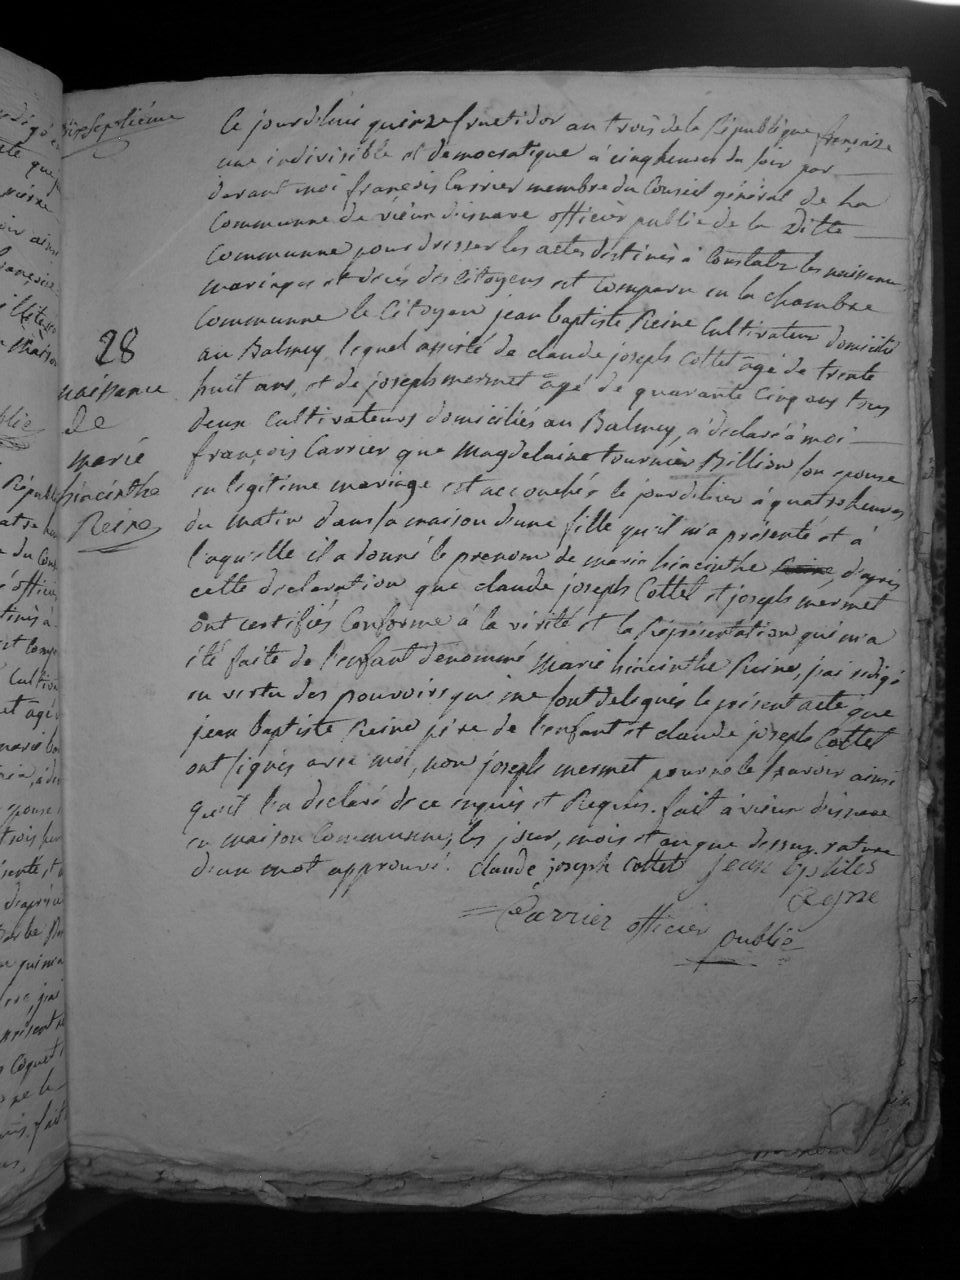 dix septième
28
naissance
de
marie
hiacinthe
Reine
Ce jourd'huis quinze fructidor an trois de la République française
une indivisible et democratique à cinq heures du soir par
devant moi françois Carrier membre du Conseil général de la
Commune de vieux disnave officier public de la ditte
Commune pour dresser les actes destinés à Constater les naissance
mariages et décès des Citoyens est Comparu en la chambre
Commune le Citoyen jean baptiste Reine Cultivateur domicilié
au Balmey, lequel assisté de claude joseph Cottet âgé de trente
huit ans, et de joseph mermet agé de quarante Cinq ans tous
deux Cultivateurs domiciliés au Balmey, a déclaré à moi
françois Carrier que Magdelaine tournier Billion son epouse
en legitime mariage est accouchée le jour d'hier à quatre heures
du matin dans sa maison d'une fille qu'il m'a présenté et à
laquelle il a donné le prenom de marie hiacinthe Reine, d'après
cette declaration que claude joseph Cottet et joseph mermet
ont certifiés Conforme à la vérité et la Représentation qui m'a
été faite de l'enfant denommé Marie hiacinthe Reine, j'ai rédigé
en vertu des pouvoirs qui me sont delegués le présent acte que
jean baptiste Reine père de l'enfant et claude joseph Cottet
ont signés avec moi, non joseph mermet pour ne le scavoir ainsi
qu'il l'a declaré de ce enquis et Requis. fait à vieux disnave
en maison Commune, les jour, mois et an que dessus. rature
d'un mot approuvé. claude joseph Cottet jean bptites
Regne
Carrier officier public